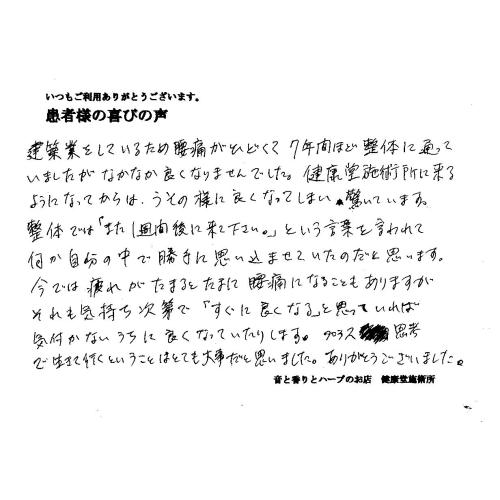 いつもご利用ありがとうございます。
患者様の喜びの声
建築業をしているため腰痛がひどくて 7年間ほど整体に通って
いましたがなかなか良くなりませんでした。健康堂施術所に来る
ようになってからは、うその様に良くなってしまい、驚いています。
整体では「また1週間後に来て下さい。」という言葉を言われて
何か自分の中で勝手に思い込ませていたのだと思います。
今では疲れがたまるとたまに腰痛になることもありますが
それも気持ち次第で「すぐに良くなる」と思っていれば
気付かないうちに良くなっていたりします。プラス思考
で生きて行くということはとても大事だと思いました。ありがとうございました。
音と香りとハーブのお店 健康堂施術所